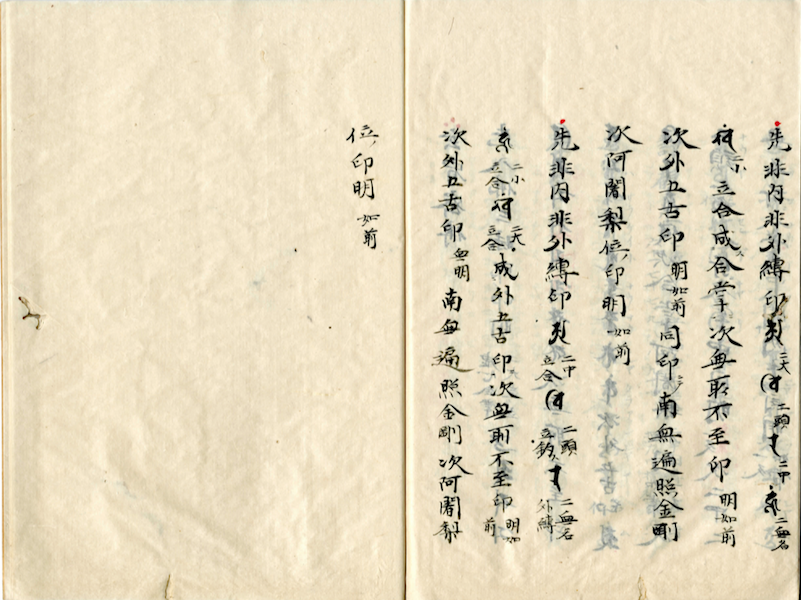 先非内非外縛印 二大 二頭 二中 二無名
二小 立合成合掌次無所不至印 明如前
次外五古印 明如前 同印ニテ南無遍照金剛
次阿闍梨位ノ印明 如前
先非内非外縛印 二中立合 二頭立鈎 二無名外縛
二小立合 二大立合 成外五古印次無所不至印 明如前
次外五古印 無明 南無遍照金剛次阿闍梨
位ノ印明 如前